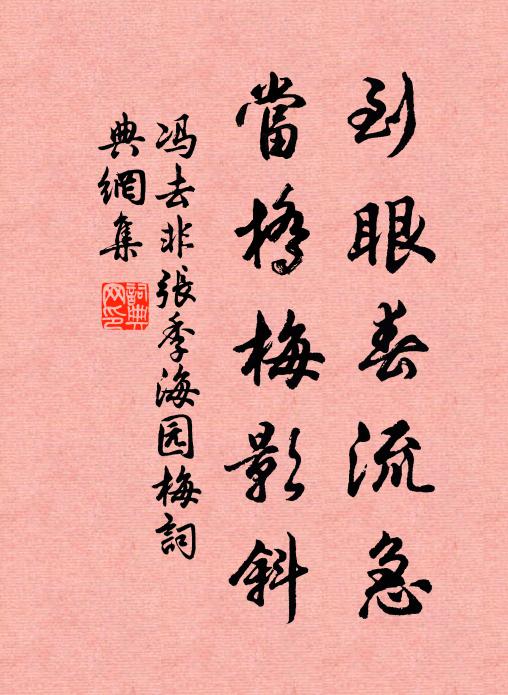 到眼春流急
當橋梅影斜
冯去非張季海园梅詞
典網集
詞典
网印